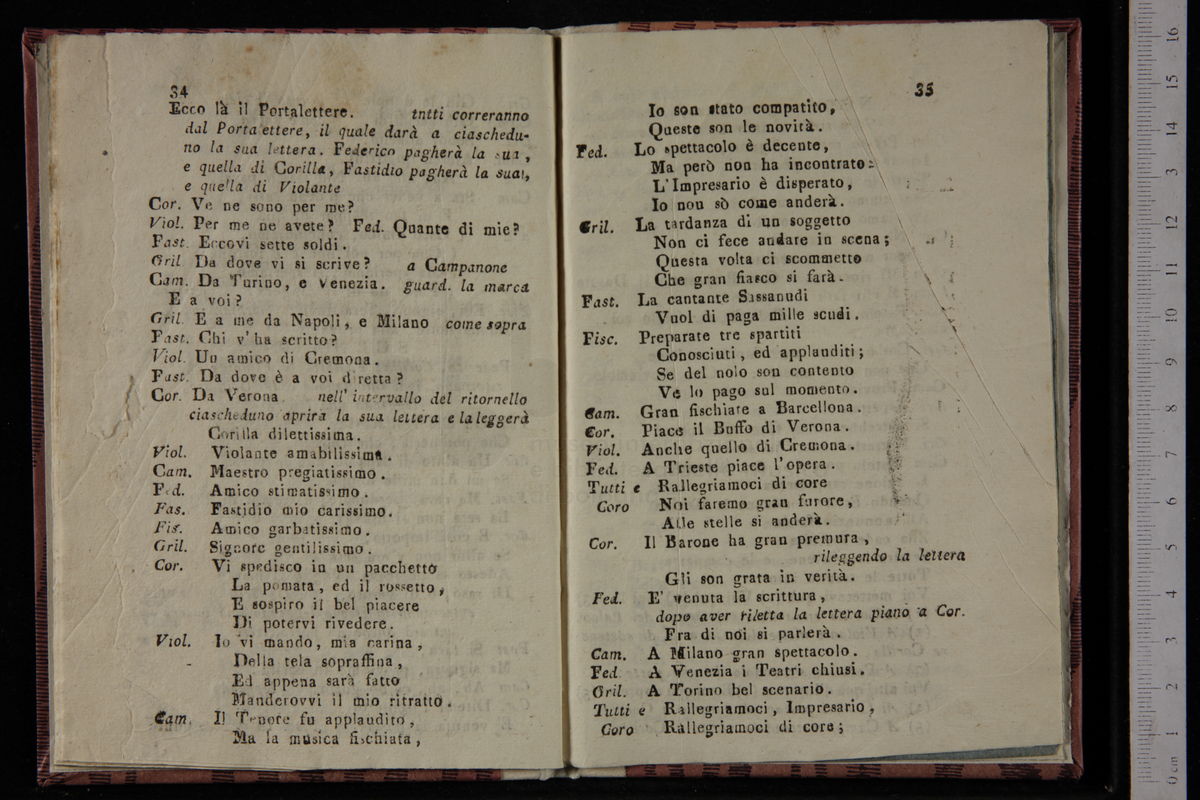 34
Ecco là il Portalettere. tntti correranno
dal Porta ettere, il quale darà a ciaschedu-
no la sua lettera. Federico pagherà la sua,
e quella di Corilla, Fastidio pagherà la sua,
e quella di Violante
Cor. Ve ne sono per me?
Viol. Per me ne avete? Fed. Quante di mie?
Fast. Eccovi sette soldi.
Gril Da dove vi si scrive? a Campanone
Cam. Da Turino, e Venezia. guard. la marca
E a voi?
Gril. E a me da Napoli, e Milano come sopra
Fast. Chi v'ha scritto?
Viol. Un amico di Cremona.
Fast. Da dove è a voi diretta?
Cor. Da Verona nell' intervallo del ritornello
ciascheduno aprirà la sua lettera e la leggerà
Corilla dilettissima.
Viol. Violante amabilissima.
Cam. Maestro pregiatissimo.
Fed. Amico stimatissimo.
Fas. Fastidio mio carissimo.
Fis. Amico garbatissimo.
Gril. Signore gentilissimo.
Cor. Vi spedisco in un pacchetto
La pomata, ed il rossetto,
E sospiro il bel piacere
Di potervi rivedere.
Viol. Io vi mando, mia carina,
Della tela sopraffina,
Ed appena sarà fatto
Manderovvi il mio ritratto.
Cam. Il Tenore fu applaudito,
Ma la musica fischiata,
35
Io son stato compatito,
Queste son le novità.
Fed. Lo spettacolo è decente,
Ma però non ha incontrato:
L'Impresario è disperato,
Io nou sò come anderà.
Gril. La tardanza di un soggetto
Non ci fece andare in scena;
Questa volta ci scommetto
Che gran fiasco si farà.
Fast. La cantante Sissanudi
Vuol di paga mille scudi.
Fisc. Preparate tre spartiti
Conosciuti, ed applauditi;
Se del nolo son contento
Ve lo pago sul momento.
Cam. Gran fischiate a Barcellona.
Cor. Piace il Buffo di Verona.
Viol. Anche quello di Cremona.
Fed. A Trieste piace l'opera.
Tutti e Rallegriamoci di core
Coro Noi faremo gran furore,
Alle stelle si anderà.
Cor. Il Barone ha gran premura,
rileggendo la lettera
Gli son grata in verità.
Fed. E' venuta la scrittura,
dopo aver riletta la lettera piano a Cor.
Fra di noi si parlerà.
Cam. A Milano gran spettacolo.
Fed A Venezia i Teatri chiusi.
Gril. A Torino bel scenario.
Tutti e Rallegriamoci, Impresario,
Coro Rallegriamoci di core;
0 cm 1 2 3 4 5 6 7 8 9 10 11 12 3 14 15 16